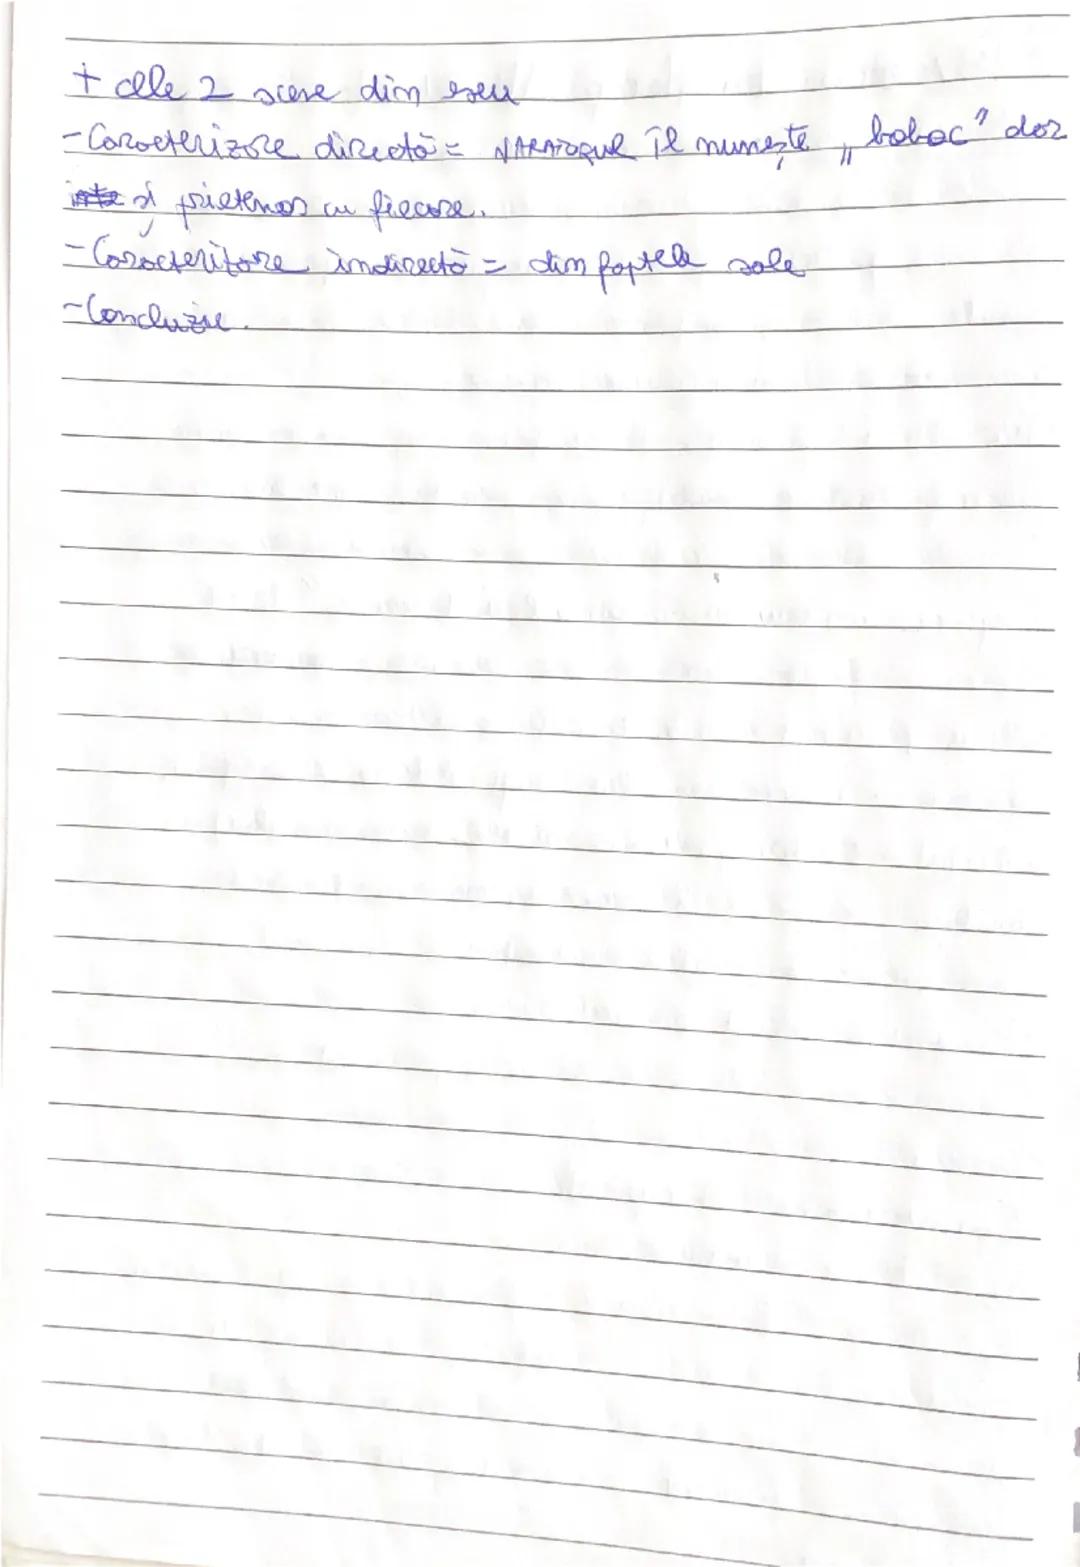 + cele 2 scene din eseu
- Caracterizare directă = NARATORUL îl numește „boboc" dar
și prietenos cu fiecare.
- Caracterizare indirectă = din faptele sale
- Concluzie.